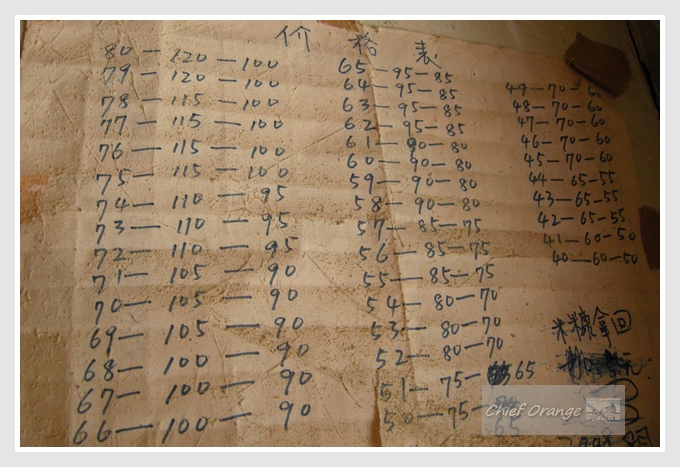 价格表
80—120—100
79—120—100
78—115—100
77—115—100
76—115—100
75—115—100
74—110—95
73—110—95
72—110—95
71—105—90
70—105—90
69—105—90
68—100—90
67—100—90
66—100—90
65—95—85
64—95—85
63—95—85
62—95—85
61—90—80
60—90—80
59—90—80
58—90—80
57—85—75
56—85—75
55—85—75
54—80—70
53—80—70
52—80—70
51—75—65
50—75—65
49—70—60
48—70—60
47—70—60
46—70—60
45—70—60
44—65—55
43—65—55
42—65—55
41—60—50
40—60—50
米糠拿回
Chief Orange